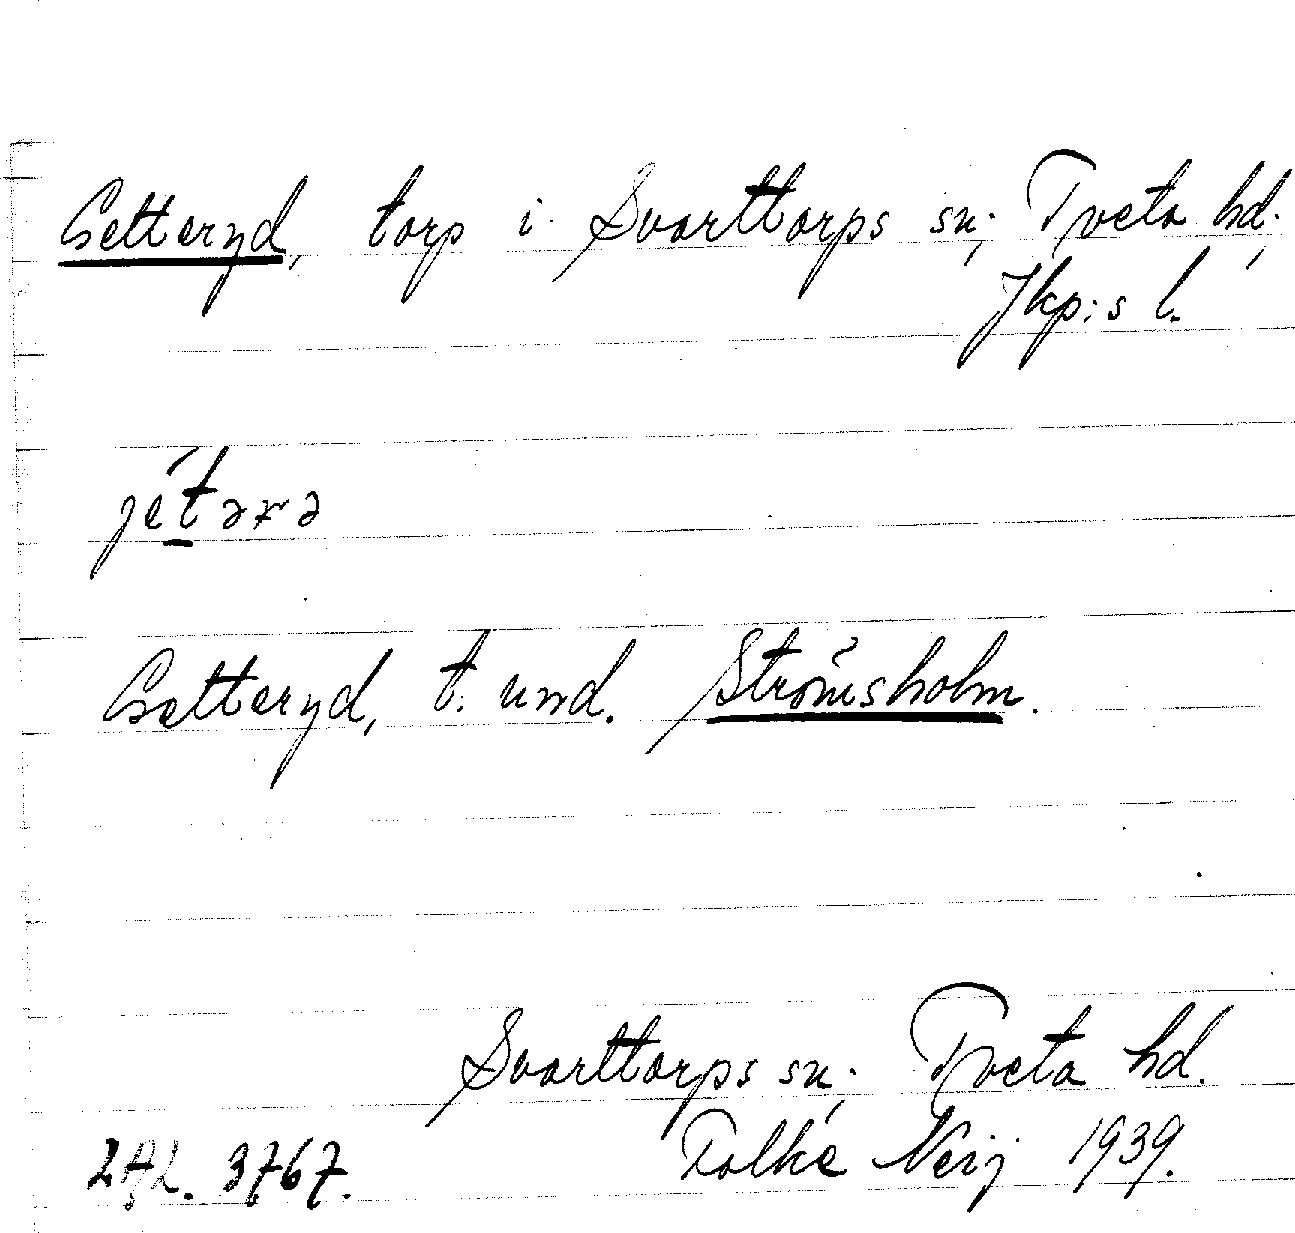 Getteryd, torp i Svarttorps sn; Tveta hd;
Jkp:s l.
Getteryd, t. und. Strömsholm.
Svarttorps sn; Tveta hd.
3767. Folke Neij 1939.